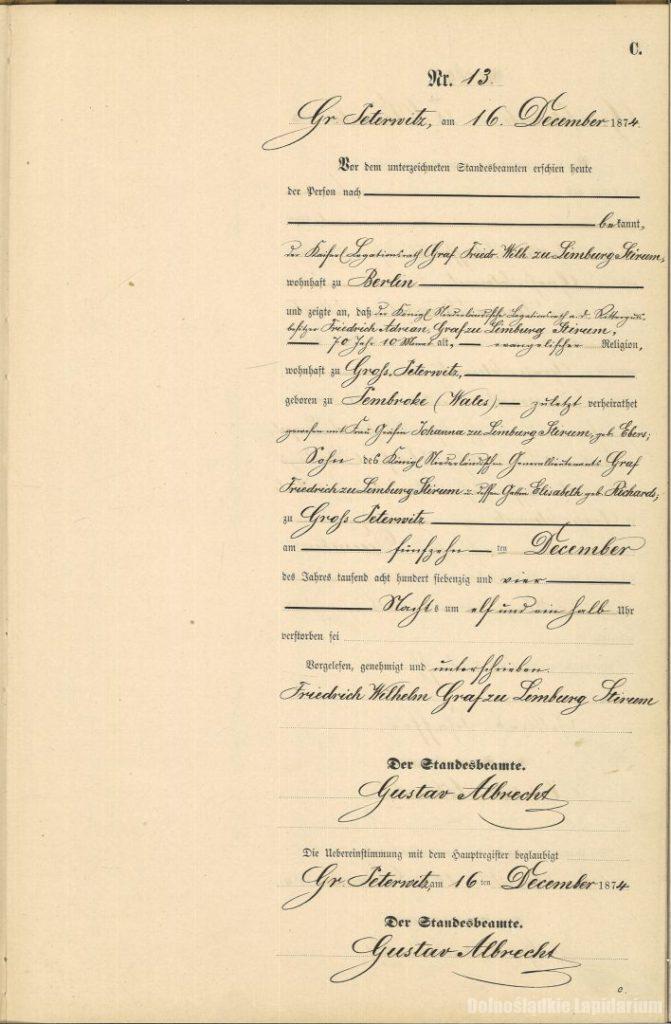 C.
Nr. 13.
Gr. Peterwitz, am 16. December 1874.
Vor dem unterzeichneten Standesbeamten erschien heute
der Person nach
bekannt,
der Kaiserl. Legationsrath Graf Friedr. Wilh. zu Limburg Stirum,
wohnhaft zu Berlin
und zeigte an, daß der Königl. Niederländische Legationsrath a. d. Ritterguts-
besitzer Friedrich Adrian, Graf zu Limburg Stirum,
70 Jahr 10 Monat alt, evangelischer Religion,
wohnhaft zu Gross Peterwitz,
geboren zu Pembroke (Wales) zuletzt verheirathet
gewesen mit Frau Gräfin Johanna zu Limburg Stirum, geb. Ebers,
Sohn des Königl. Niederländischen Generallieutenants Graf
Friedrich zu Limburg Stirum u. dessen Gattin Elisabeth geb. Richards,
zu Gross Peterwitz
am fünfzehn ten December
des Jahres tausend acht hundert siebenzig und vier
Nachts um elf und ein halb Uhr
verstorben sei
Vorgelesen, genehmigt und unterschrieben.
Friedrich Wilhelm Graf zu Limburg Stirum
Der Standesbeamte.
Gustav Albrecht
Die Uebereinstimmung mit dem Hauptregister beglaubigt
Gr. Peterwitz, am 16 ten December 1874
Der Standesbeamte.
Gustav Albrecht
Dolnośladkie Lapidarium